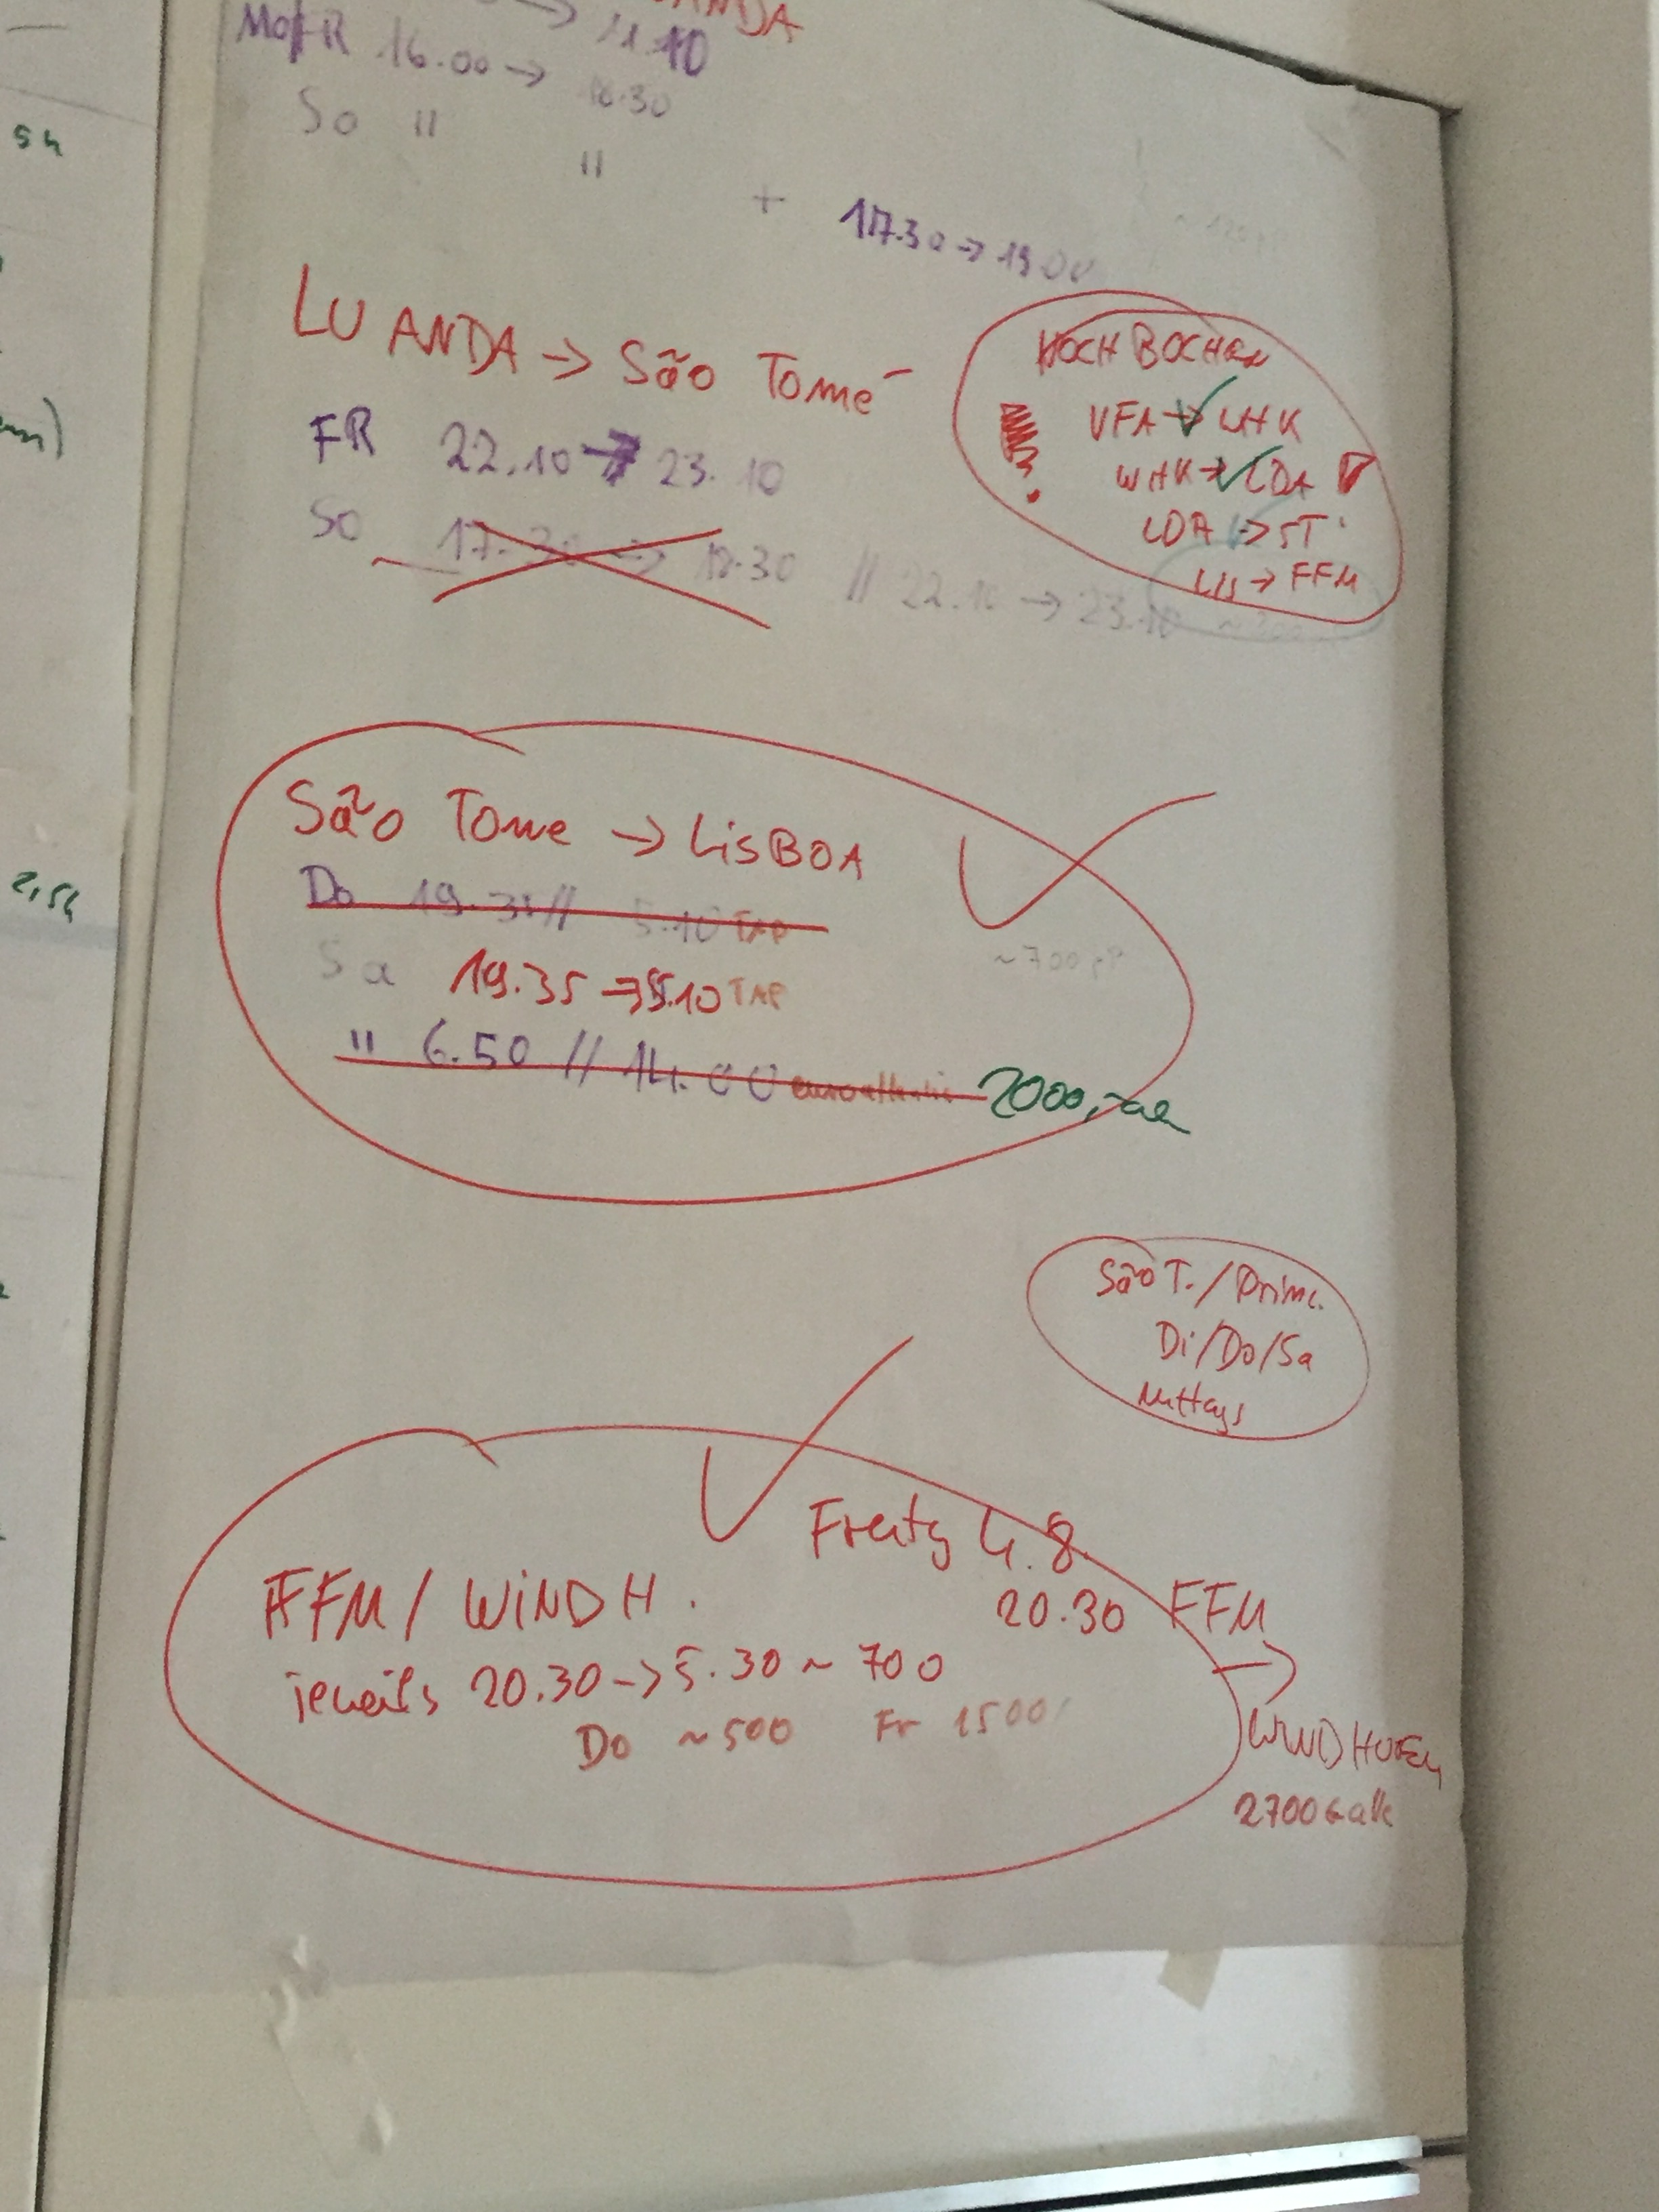 ANDA
→ 11.10
MO/FR 16.00 → 18.30
So " "
+ 17.30 → 19.00
5h
LUANDA → São Tomé
FR 22.10 → 23.10
So 17.30 → 18.30 // 22.10 → 23.10
HOCH BOCHEN
VFA → WHK
WHK → LDA
LDA → ST
LIS → FFM
São Tome → LiSBOA
Do 19.35 // 5.10 TAP
Sa 19.35 → 5.10 TAP
~700 pP
" 6.50 // 14.00 euroatlantic 2000,-
2,5h
São T. / Princ.
Di/Do/Sa
Mittags
Freitg 4.8.
FFM / WiNDH. 20.30 FFM →
jeweils 20.30 → 5.30 ~ 700
Do ~500 Fr 1500
WINDHOEK
2700 € alle